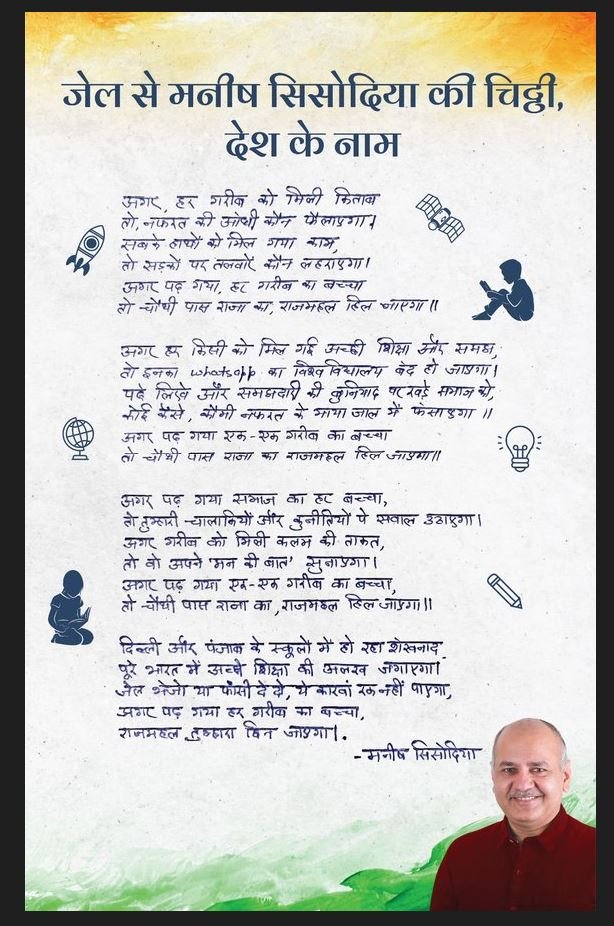 जेल से मनीष सिसोदिया की चिट्ठी,
देश के नाम
अगर, हर गरीब को मिली किताब
तो, नफरत की आंधी कौन फैलाएगा।
सबके हाथों को मिल गया काम,
तो सड़कों पर तलवारें कौन लहराएगा।
अगर पढ़ गया, हर गरीब का बच्चा
तो चौथी पास राजा का, राजमहल हिल जाएगा॥
अगर हर किसी को मिल गई अच्छी शिक्षा और समझ,
तो इनका whatsapp का विश्वविद्यालय बंद हो जाएगा।
पढ़े लिखे और समझदारी की बुनियाद पर खड़े समाज को,
कोई कैसे, कौमी नफरत के माया जाल में फंसाएगा ॥
अगर पढ़ गया एक-एक गरीब का बच्चा
तो चौथी पास राजा का राजमहल हिल जाएगा॥
अगर पढ़ गया समाज का हर बच्चा,
तो तुम्हारी चालाकियों और कुनीतियों पे सवाल उठाएगा।
अगर गरीब को मिली कलम की ताकत,
तो वो अपने 'मन की बात' सुनाएगा।
अगर पढ़ गया एक-एक गरीब का बच्चा,
तो चौथी पास राजा का, राजमहल हिल जाएगा॥
दिल्ली और पंजाब के स्कूलों में हो रहा शंखनाद
पूरे भारत में अच्छी शिक्षा की अलख जगाएगा।
जेल भेजो या फाँसी दे दो, ये कारवां रुक नहीं पाएगा,
अगर पढ़ गया हर गरीब का बच्चा,
राजमहल तुम्हारा हिल जाएगा।.
-मनीष सिसोदिया